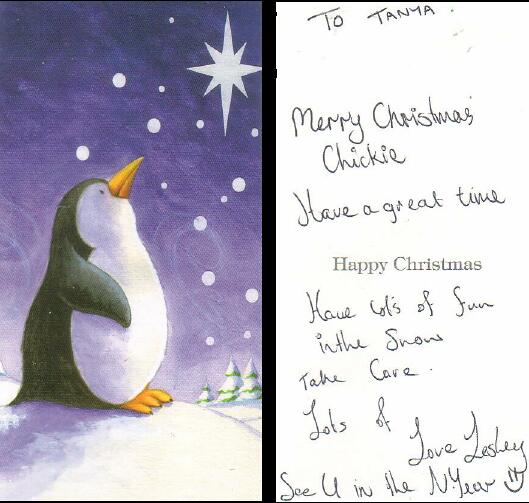 TO TANYA.
Merry Christmas
Chickie
Have a great time
Happy Christmas
Have lots of fun
in the Snow
Take Care.
Lots of
Love Lesley
See U in the N.Year